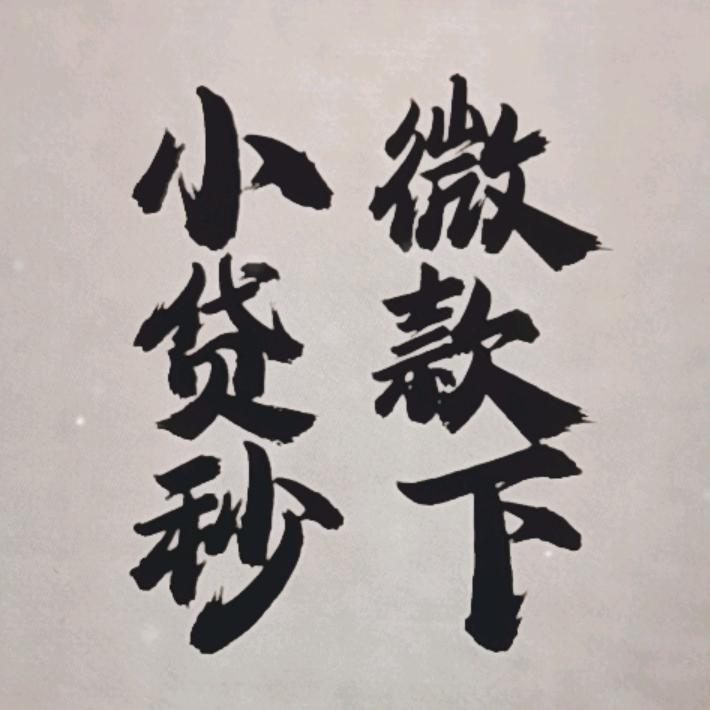 微款下
小贷秒